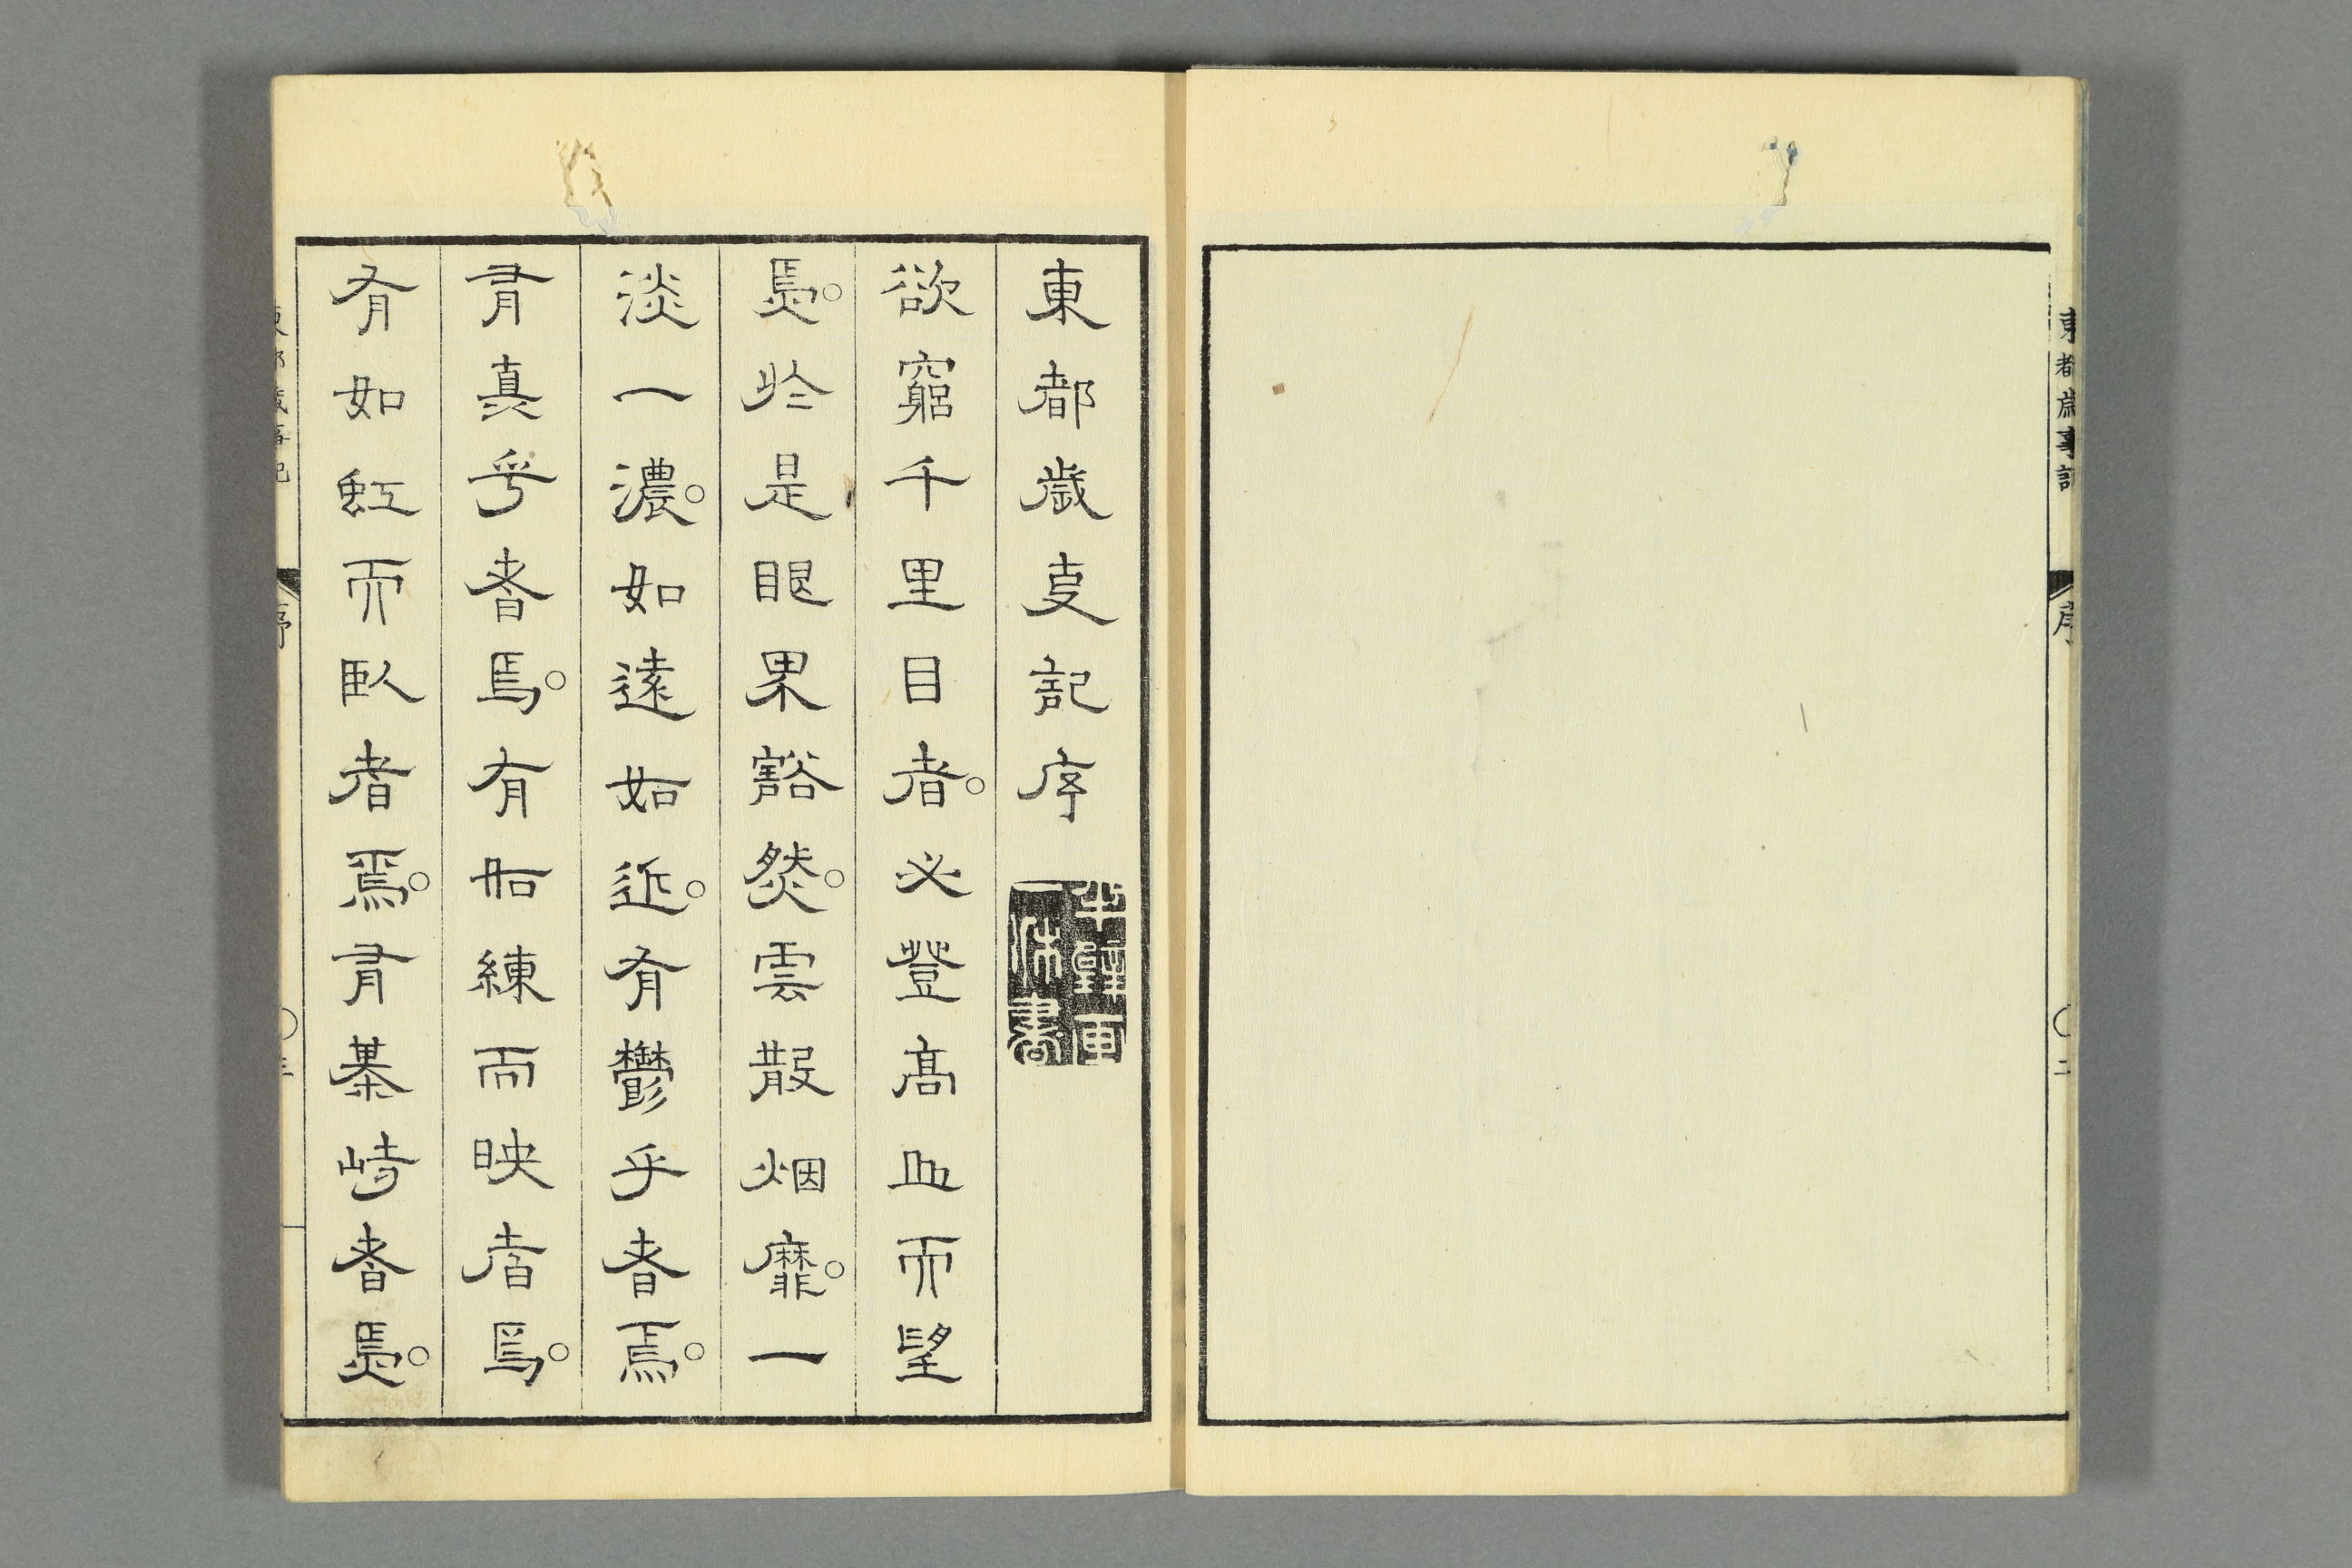 東都歳事記
序
〇二
東都歳叓記序
欲窮千里目者。必登高丘而望
焉。於是眼界豁然。雲散烟靡。一
淡一濃。如遠如近。有鬱乎者焉。
有真乎者焉。有如練而映者焉。
有如虹而臥者焉。有棊峙者焉。